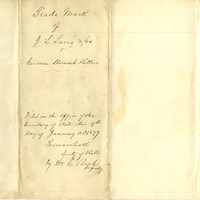 Trade Mark
of
J. L. Lang & Co
German Stomach Bitters
Filed in the Office of the
Secretary of State this 4th
day of January AD 1877
Secty of State
By
Deputy